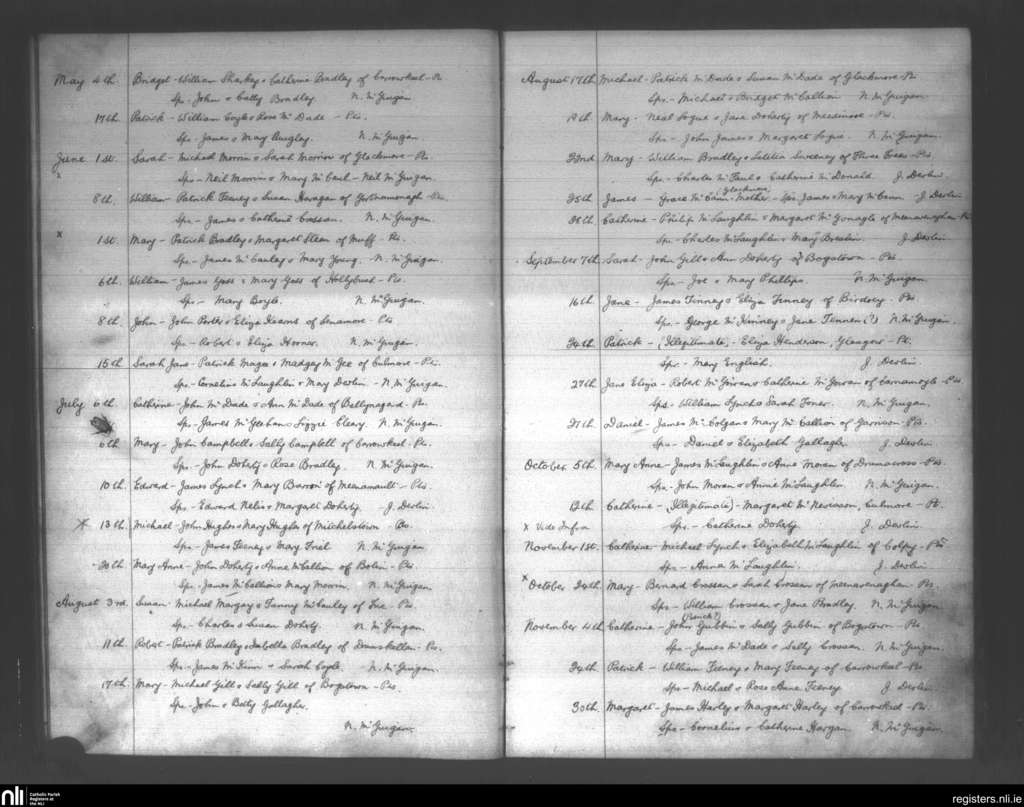 May 4th. Bridget - William Sharkey & Catherine Bradley of Carrowkeel - Ps
Sps - John & Cally Bradley. N. McGuigan
17th. Patrick - William Coyle & Rose McDade - Ps.
Sps - James & Mary Quigley. N. McGuigan.
June 1st. Sarah - Michael Morrin & Sarah Morrin of Glackmore - Ps.
x Sps - Neil Morrin & Mary McCaul - Neil McGuigan.
8th. William - Patrick Feeney & Susan Haragan of
Sps - James & Catherine Crossan. N. McGuigan.
x 1st. Mary - Patrick Bradley & Margaret Steen of Muff - Ps.
Sps - James McCauley & Mary Young. N. McGuigan.
6th. William - James Goss & Mary Goss of Hollybush - Ps.
Sps - Mary Boyle. N. McGuigan.
8th. John - John Porter & Eliza Kearns of Tenamore - Ps
Sps - Robert & Eliza Horner. N. McGuigan.
15th Sarah Jane - Patrick Maga & Madgey McGee of Culmore - Ps.
Sps - Cornelius McLaughlin & Mary Devlin - N. McGuigan.
July 6th. Catherine - John McDade & Ann McDade of Ballynagard - Ps.
Sps - James McGeehan & Lizzie Cleary. N. McGuigan.
6th Mary - John Campbell & Sally Campbell of Carrowkeel - Ps.
Sps - John Doherty & Rose Bradley. N. McGuigan.
10th. Edward - James Lynch & Mary Barron of Meenanault - Ps.
Sps - Edward Nelis & Margaret Doherty. J. Devlin.
x 13th. Michael - John Hughes & Mary Hughes of Mitchelstown - Ps.
Sps - James Feeney & Mary Friel N. McGuigan
20th. Mary Anne - John Doherty & Anne McCallion of Bolin - Ps.
Sps - James McCallion & Mary Morrin. N. McGuigan
August 3rd. Susan - Michael Margay & Fanny McCauley of Ps.
Sps - Charles & Susan Doherty. N. McGuigan.
11th Robert - Patrick Bradley & Isabella Bradley of Drumskellan - Ps.
Sps - James McKinn & Sarah Coyle. N. McGuigan.
17th. Mary - Michael Gill & Sally Gill of Bogstown - Ps.
Sps - John & Betty Gallagher.
N. McGuigan.
August 17th Michael - Patrick McDade & Susan McDade of Glackmore - Ps
Sps - Michael & Bridget McCallion N. McGuigan
18th. Mary - Neal Logue & Jane Doherty of - Ps.
Sps - John James & Margaret Logue. N. McGuigan.
22nd Mary - William Bradley & Letitia Sweeney of Three Trees - Ps
Sps - Charles McFaul & Catherine McDonald. J. Devlin.
25th James - Grace McCann (Glackmore) - Mother - Sps. James & Mary McCann - J. Devlin
Catherine - Philip McLaughlin & Margaret McGonagle of Meenavenaghan - Ps
Sps - Charles McLaughlin & Mary Breslin. J. Devlin.
September 7th. Sarah - John Gill & Ann Doherty of Bogstown - Ps.
Sps - Joe & Mary Phillips. N. McGuigan
16th. Jane - James Tinney & Eliza Tinney of Birdstg - Ps
Sps - George McKinney & Jane Tinnen (?) N. McGuigan.
24th. Patrick - (Illegitimate) - Eliza Henderson, Glasgow - Pt.
Sps - Mary English. J. Devlin.
27th Jane Eliza - Robert McGowan & Catherine McGowan of Carnamoyle - Ps.
Sps - William Lynch & Sarah Toner. N. McGuigan.
27th Daniel - James McColgan & Mary McCallion of Garrison - Ps.
Sps - Daniel & Elizabeth Gallagher. J. Devlin
October 5th. Mary Anne - James McLaughlin & Anne Moran of Drumacross - Ps.
Sps - John Moran & Annie McLaughlin. N. McGuigan.
12th Catherine - (Illegitimate) - Margaret McKeown, Culmore - Pt.
x Vide Infra Sps - Catherine Doherty. J. Devlin
November 1st. Catherine - Michael Lynch & Elizabeth McLaughlin of Colpy - Ps
Sps - Anna McLaughlin. J. Devlin.
x October 24th Mary - Bernard Crossan & Sarah Crossan of Meenavenaghan - Ps.
Sps - William Crossan & Jane Bradley. N. McGuigan
November 4th Catherine - John Gubbin & Sally Gubbin of Bogstown - Ps.
Sps - James McDade & Sally Crossan. N. McGuigan.
24th Patrick - William Feeney & Mary Feeney of Carrowkeel - Ps
Sps - Michael & Rose Anne Feeney J. Devlin.
30th. Margaret - James Harley & Margaret Harley of Carrowkeel - Ps.
Sps - Cornelius & Catherine Hargan. N. McGuigan.
nli Catholic Parish Registers at the NLI
registers.nli.ie